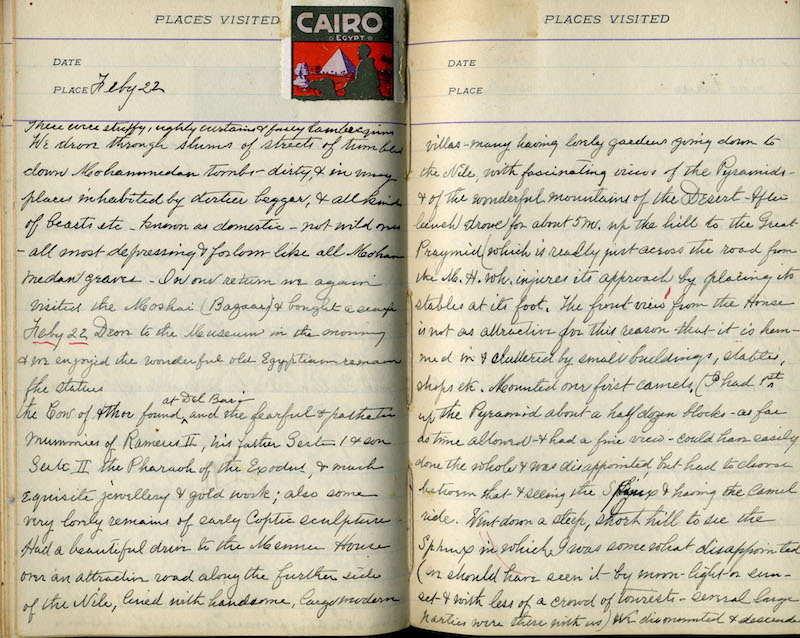 PLACES VISITED
CAIRO
EGYPT
DATE
PLACE Feby 22
There were stuffy, ughly curtains & fussy lambrequins
We drove through slums of streets of tumbled
down Mohammedan tombs - dirty, & in many
places inhabited by dirtier beggar, & all kinds
of beasts etc - known as domestic - not wild ones
- all most depressing & forlorn like all Moham
medan graves - On our return we again
visited the Moskai (Bazaar) & bought a scarf
Feby 22 Drove to the Museum in the morning
& we enjoyed the wonderful old Egyptian remain
the statues
at Del Bari
the Cow of Athor found, and the fearful & pathetic
Mummies of Rameses II, his father Seti 1 & son
Seti II the Pharaoh of the Exodus, & much
Equisite jewellery & gold work; also some
very lonly remains of early Coptic sculpture -
Had a beautiful drive to the Mennee House
over an attractive road along the further side
of the Nile, lined with handsome, large modern
PLACES VISITED
DATE
PLACE
villas - many having lovely gardens going down to
the Nile, with fascinating views of the Pyramids -
& of the wonderful mountains of the Desert - After
lunch drove for about 5 m. up the hill to the Great
Praymid (which is really just across the road from
the M. H. wh. injures its approach by placing its
stables at its foot. The front view from the House
is not as attractive for this reason - that it is hem-
med in & cluttered by small buildings, stables,
shops etc. Mounted our first camels, (I had 1st
up the Pyramid about a half dozen blocks - as far
as time allowed - & had a fine view - could have easily
done the whole & was disappointed but had to choose
between that & seeing the Sphinx & having the Camel
ride. Went down a steep, short hill to see the
Sphinx in which I was some what disappointed
(we should have seen it by moon-light or sun-
set & with less of a crowd of tourists - several large
parties were there with us) We dismounted & descende